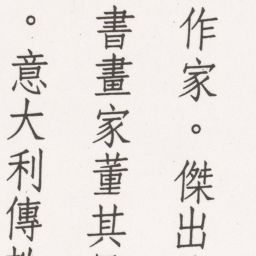 作家。傑出
書畫家董其
。意大利傳